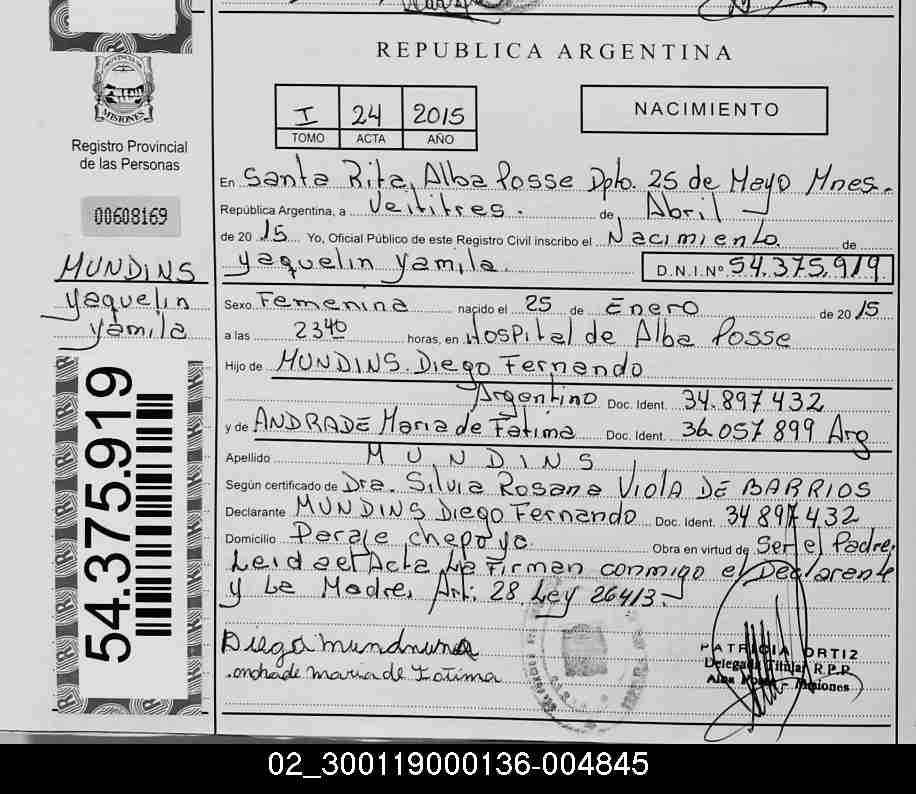 REPUBLICA ARGENTINA
PROVINCIA DE MISIONES
Registro Provincial
de las Personas
00608169
MUNDINS
Yaquelin
Yamila
54.375.919
I 24 2015
TOMO ACTA AÑO
NACIMIENTO
En Santa Rita, Alba Posse Dpto. 25 de Mayo Mnes.
República Argentina, a Veititres. de Abril
de 20 15 Yo, Oficial Público de este Registro Civil inscribo el Nacimiento. de
Yaquelin Yamila. D.N.I.Nº 54.375.919
Sexo Femenina nacido el 25 de Enero de 20 15
a las 23 40 horas, en Hospital de Alba Posse
Hijo de MUNDINS. Diego Fernando
Argentino Doc. Ident. 34.897432
y de ANDRADE Maria de Fatima Doc. Ident. 36 057 899 Arg
Apellido MUNDINS
Según certificado de Dra. Silvia Rosana VIOLA DE BARRIOS
Declarante MUNDINS Diego Fernando Doc. Ident. 34 897 432
Domicilio Paraje chapoyo. Obra en virtud de Ser el Padre,
Leida el Acta La Firman conmigo el Declarente
y La Madre, Art: 28 Ley 26413.
Diego
maria de Fatima
PATRICIA ORTIZ
Delegada Titular R.P.P.
Alba Posse - Misiones
02_300119000136-004845